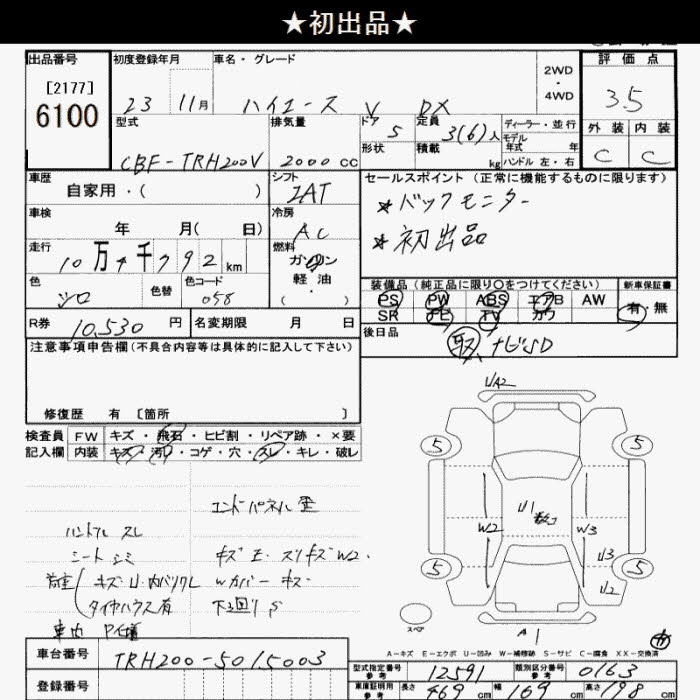 ★初出品★
出品番号
[2177]
6100
初度登録年月
23 11月
車名・グレード
ハイエース V DX
2WD
・
4WD
評価点
3.5
外装 内装
C C
型式
CBF-TRH200V
排気量
2000 CC
ドア 5
形状
定員 3(6)人
積載 kg
ディーラー・並行
モデル
年式 年
ハンドル 左・右
車歴
自家用・( )
シフト
IAT
車検
年 月( 日)
冷房
AC
走行
10万4千792 km
燃料
ガソリン
軽油
( ・ )
色
シロ
色替
色コード
058
R券 10,530 円
名変期限 月 日
セールスポイント (正常に機能するものに限ります)
★バックモニター
★初出品
装備品(純正品に限り〇をつけてください)
新車保証書
PS PW ABS エアB AW
SR PL TV カワ
有・無
後日品
取 ナビSD
注意事項申告欄(不具合内容等は具体的に記入して下さい)
修復歴 有 [箇所 ]
検査員
記入欄
FW キズ・飛石・ヒビ割・リペア跡・×要
内装 キズ・汚れ・コゲ・穴・スレ・キレ・破レ
エンドパネル 歪
ハンドル スレ
シートシミ
荷室 キズ U・内バリクレ
タイヤハウス有
キズ E・スリキズ W2・
Wカバー キズ
下回り S
車内 P仕様
UA2
5 5
U1
W2 W3
U3
U2
5 5
スペア
A1
A-キズ E-エクボ U-凹み W-補修跡 S-サビ C-腐食 XX-交換済
車台番号 TRH200-5015003
登録番号
型式指定番号
参考
12591
類別区分番号
参考
0163
車庫証明用
参考
長さ 469 cm 幅 169 cm 高さ 198 cm